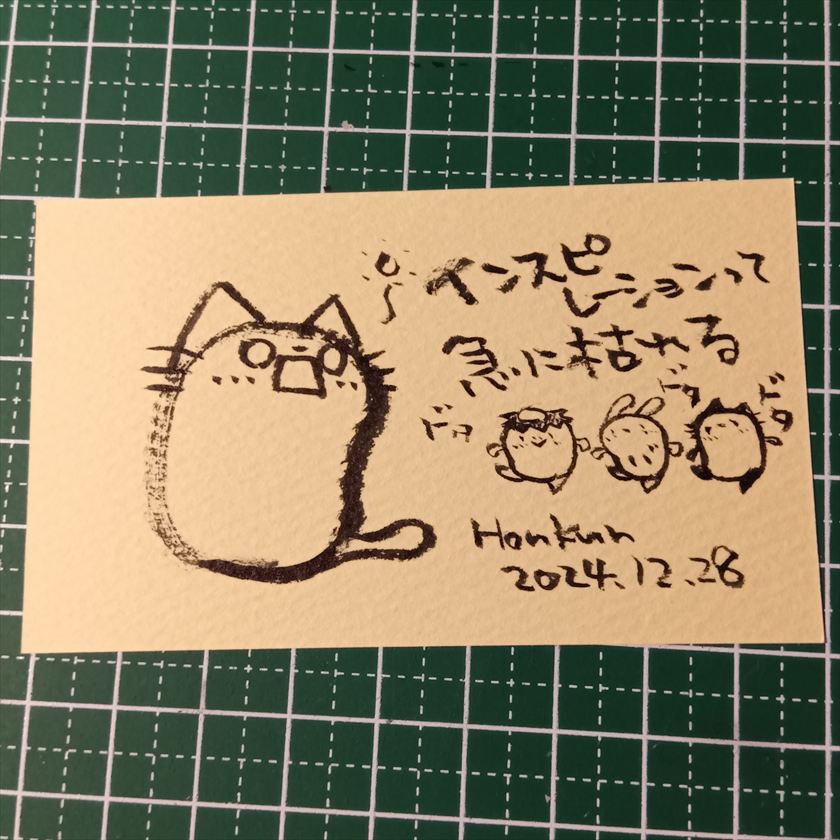 インスピ
レーションって
急に枯れる
ドタ
ドタ
ドタ
Honkun
2024.12.28